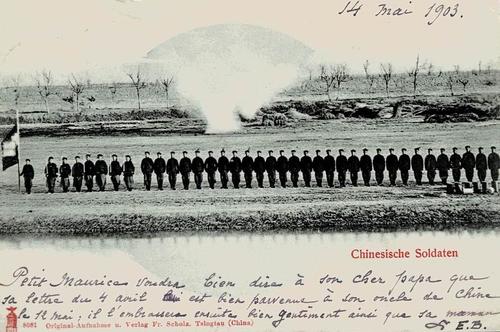 14 Mai 1903.
Chinesische Soldaten
Petit Maurice voudra bien dire à son cher papa que
sa lettre du 4 avril lui est bien parvenue à son oncle de Chine
le 12 Mai; il l'embrassera ensuite bien gentiment ainsi que sa maman
E.B.
8081 Original-Aufnahme u. Verlag Fr. Scholz, Tsingtau (China)